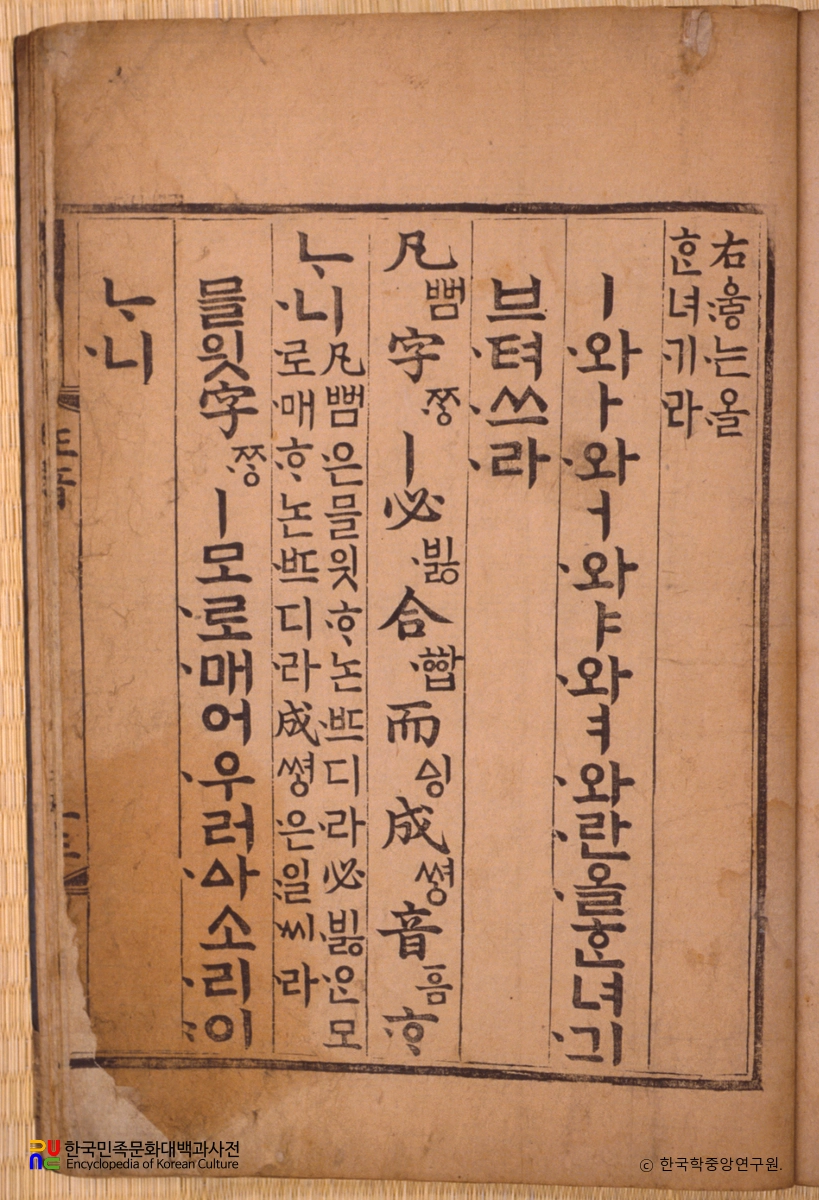 右ᅌᅮᇢ는올
ᄒᆞᆫ녀기라
ㅣ와ㅏ와ㅓ와ㅑ와ㅕ와란올ᄒᆞᆫ녀긔
브텨쓰라
凡뻠字ᄍᆞᆼㅣ必비ᇙ合ᅘᅡᆸ而ᅀᅵᆼ成쎵音ᅙᅳᆷᄒᆞ
ᄂᆞ니
凡뻠은믈읫ᄒᆞ논ᄠᅳ디라必비ᇙᄋᆞᆫ모
로매ᄒᆞ논ᄠᅳ디라成쎵은일씨라
믈읫字ᄍᆞᆼㅣ모로매어우러ᅀᅡ소리이
ᄂᆞ니
한국민족문화대백과사전
Encyclopedia of Korean Culture
© 한국학중앙연구원.